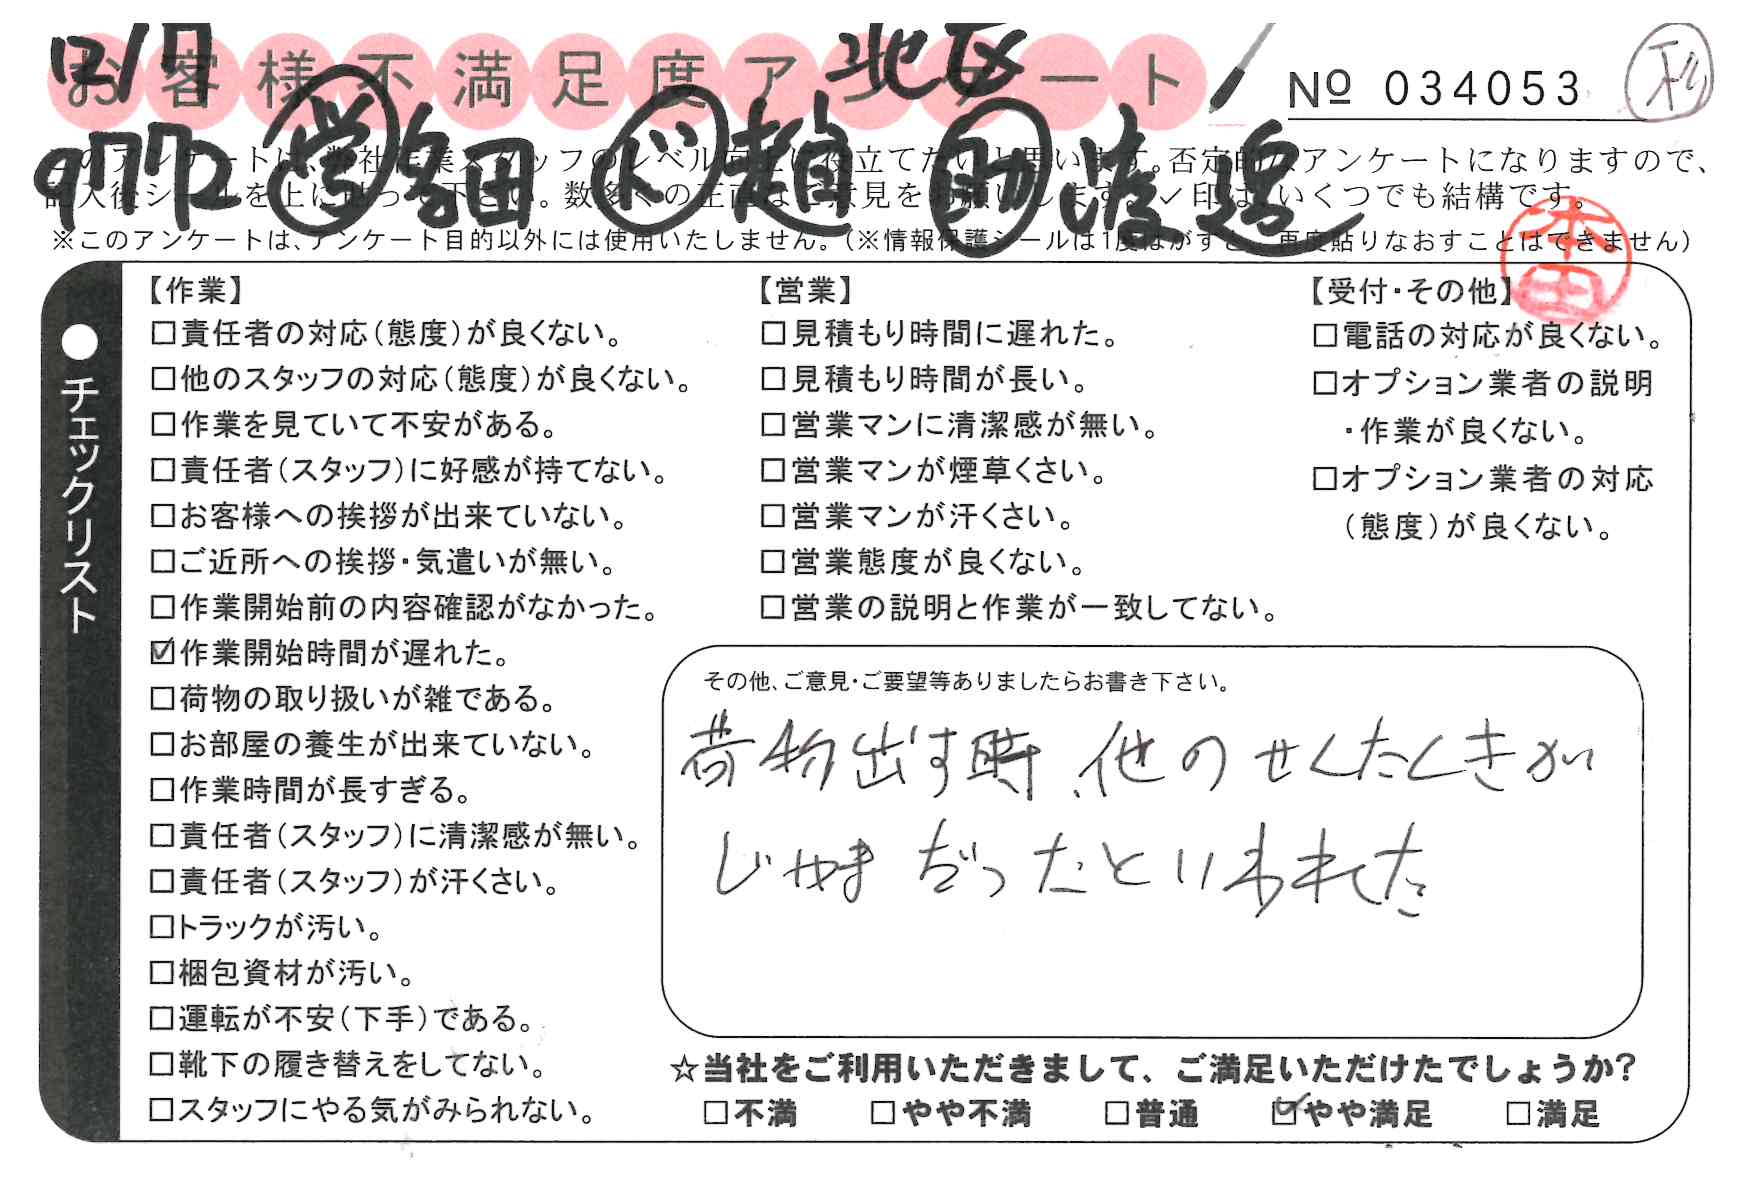 お客様不満足度アンケート
北区
№ 034053
9772 学 島田 ド 趙 助 渡邉
このアンケートは、弊社作業スタッフのレベル向上に役立てたいと思います。否定的なアンケートになりますので、
記入後シールを上に貼って下さい。数多くの正直なご意見をお願いします。✓印は、いくつでも結構です。
※このアンケートは、アンケート目的以外には使用いたしません。（※情報保護シールは1度はがすと、再度貼りなおすことはできません）
本田
●チェックリスト
【作業】
□責任者の対応（態度）が良くない。
□他のスタッフの対応（態度）が良くない。
□作業を見ていて不安がある。
□責任者（スタッフ）に好感が持てない。
□お客様への挨拶が出来ていない。
□ご近所への挨拶・気遣いが無い。
□作業開始前の内容確認がなかった。
☑作業開始時間が遅れた。
□荷物の取り扱いが雑である。
□お部屋の養生が出来ていない。
□作業時間が長すぎる。
□責任者（スタッフ）に清潔感が無い。
□責任者（スタッフ）が汗くさい。
□トラックが汚い。
□梱包資材が汚い。
□運転が不安（下手）である。
□靴下の履き替えをしてない。
□スタッフにやる気がみられない。
【営業】
□見積もり時間に遅れた。
□見積もり時間が長い。
□営業マンに清潔感が無い。
□営業マンが煙草くさい。
□営業マンが汗くさい。
□営業態度が良くない。
□営業の説明と作業が一致してない。
【受付・その他】
□電話の対応が良くない。
□オプション業者の説明
・作業が良くない。
□オプション業者の対応
（態度）が良くない。
その他、ご意見・ご要望等ありましたらお書き下さい。
荷物出す時、他のせくたくきが
じゃまだったといわれた
☆当社をご利用いただきまして、ご満足いただけたでしょうか?
□不満 □やや不満 □普通 ☑やや満足 □満足